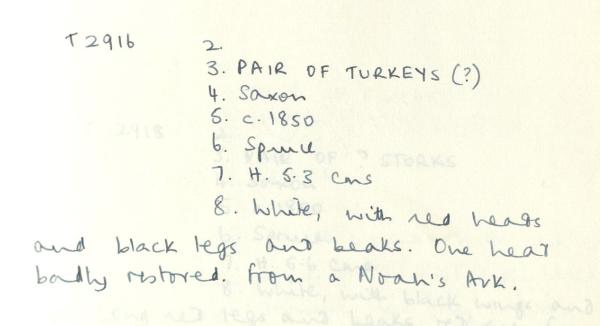 T 2916 2.
3. PAIR OF TURKEYS (?)
4. Saxon
5. c. 1850
6. Spruce
7. H. 5.3 cms
8. White, with red heads
and black legs and beaks. One head
badly restored. From a Noah's Ark.